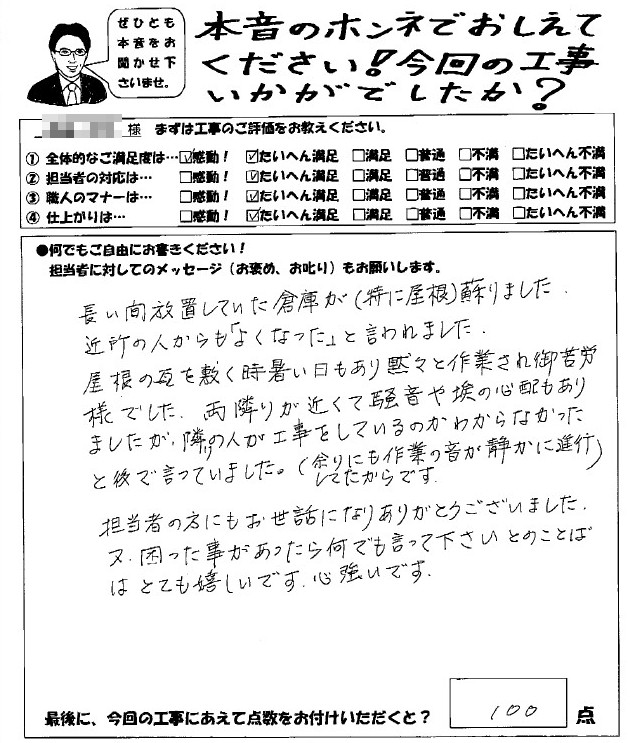 ぜひとも
本音をお
聞かせ下
さいませ。
本音のホンネでおしえて
ください!今回の工事
いかがでしたか?
様 まずは工事のご評価をお教えください。
① 全体的なご満足度は… ☑感動! ☑たいへん満足 □満足 □普通 □不満 □たいへん不満
② 担当者の対応は… □感動! ☑たいへん満足 □満足 □普通 □不満 □たいへん不満
③ 職人のマナーは… □感動! ☑たいへん満足 □満足 □普通 □不満 □たいへん不満
④ 仕上がりは… □感動! ☑たいへん満足 □満足 □普通 □不満 □たいへん不満
●何でもご自由にお書きください!
担当者に対してのメッセージ(お褒め、お叱り)もお願いします。
長い間放置していた倉庫が(特に屋根)蘇りました.
近所の人からも「よくなった」と言われました.
屋根の瓦を敷く時暑い日もあり黙々と作業され御苦労
様でした. 両隣りが近くて騒音や埃の心配もあり
ましたが, 隣りの人が工事をしているのかわからなかった
と後で言っていました。(余りにも作業の音が静かに進行
してたからです.)
担当者の方にもお世話になりありがとうございました.
又, 困った事があったら何でも言って下さいとのことば
はとても嬉しいです. 心強いです.
最後に、今回の工事にあえて点数をお付けいただくと? 100 点